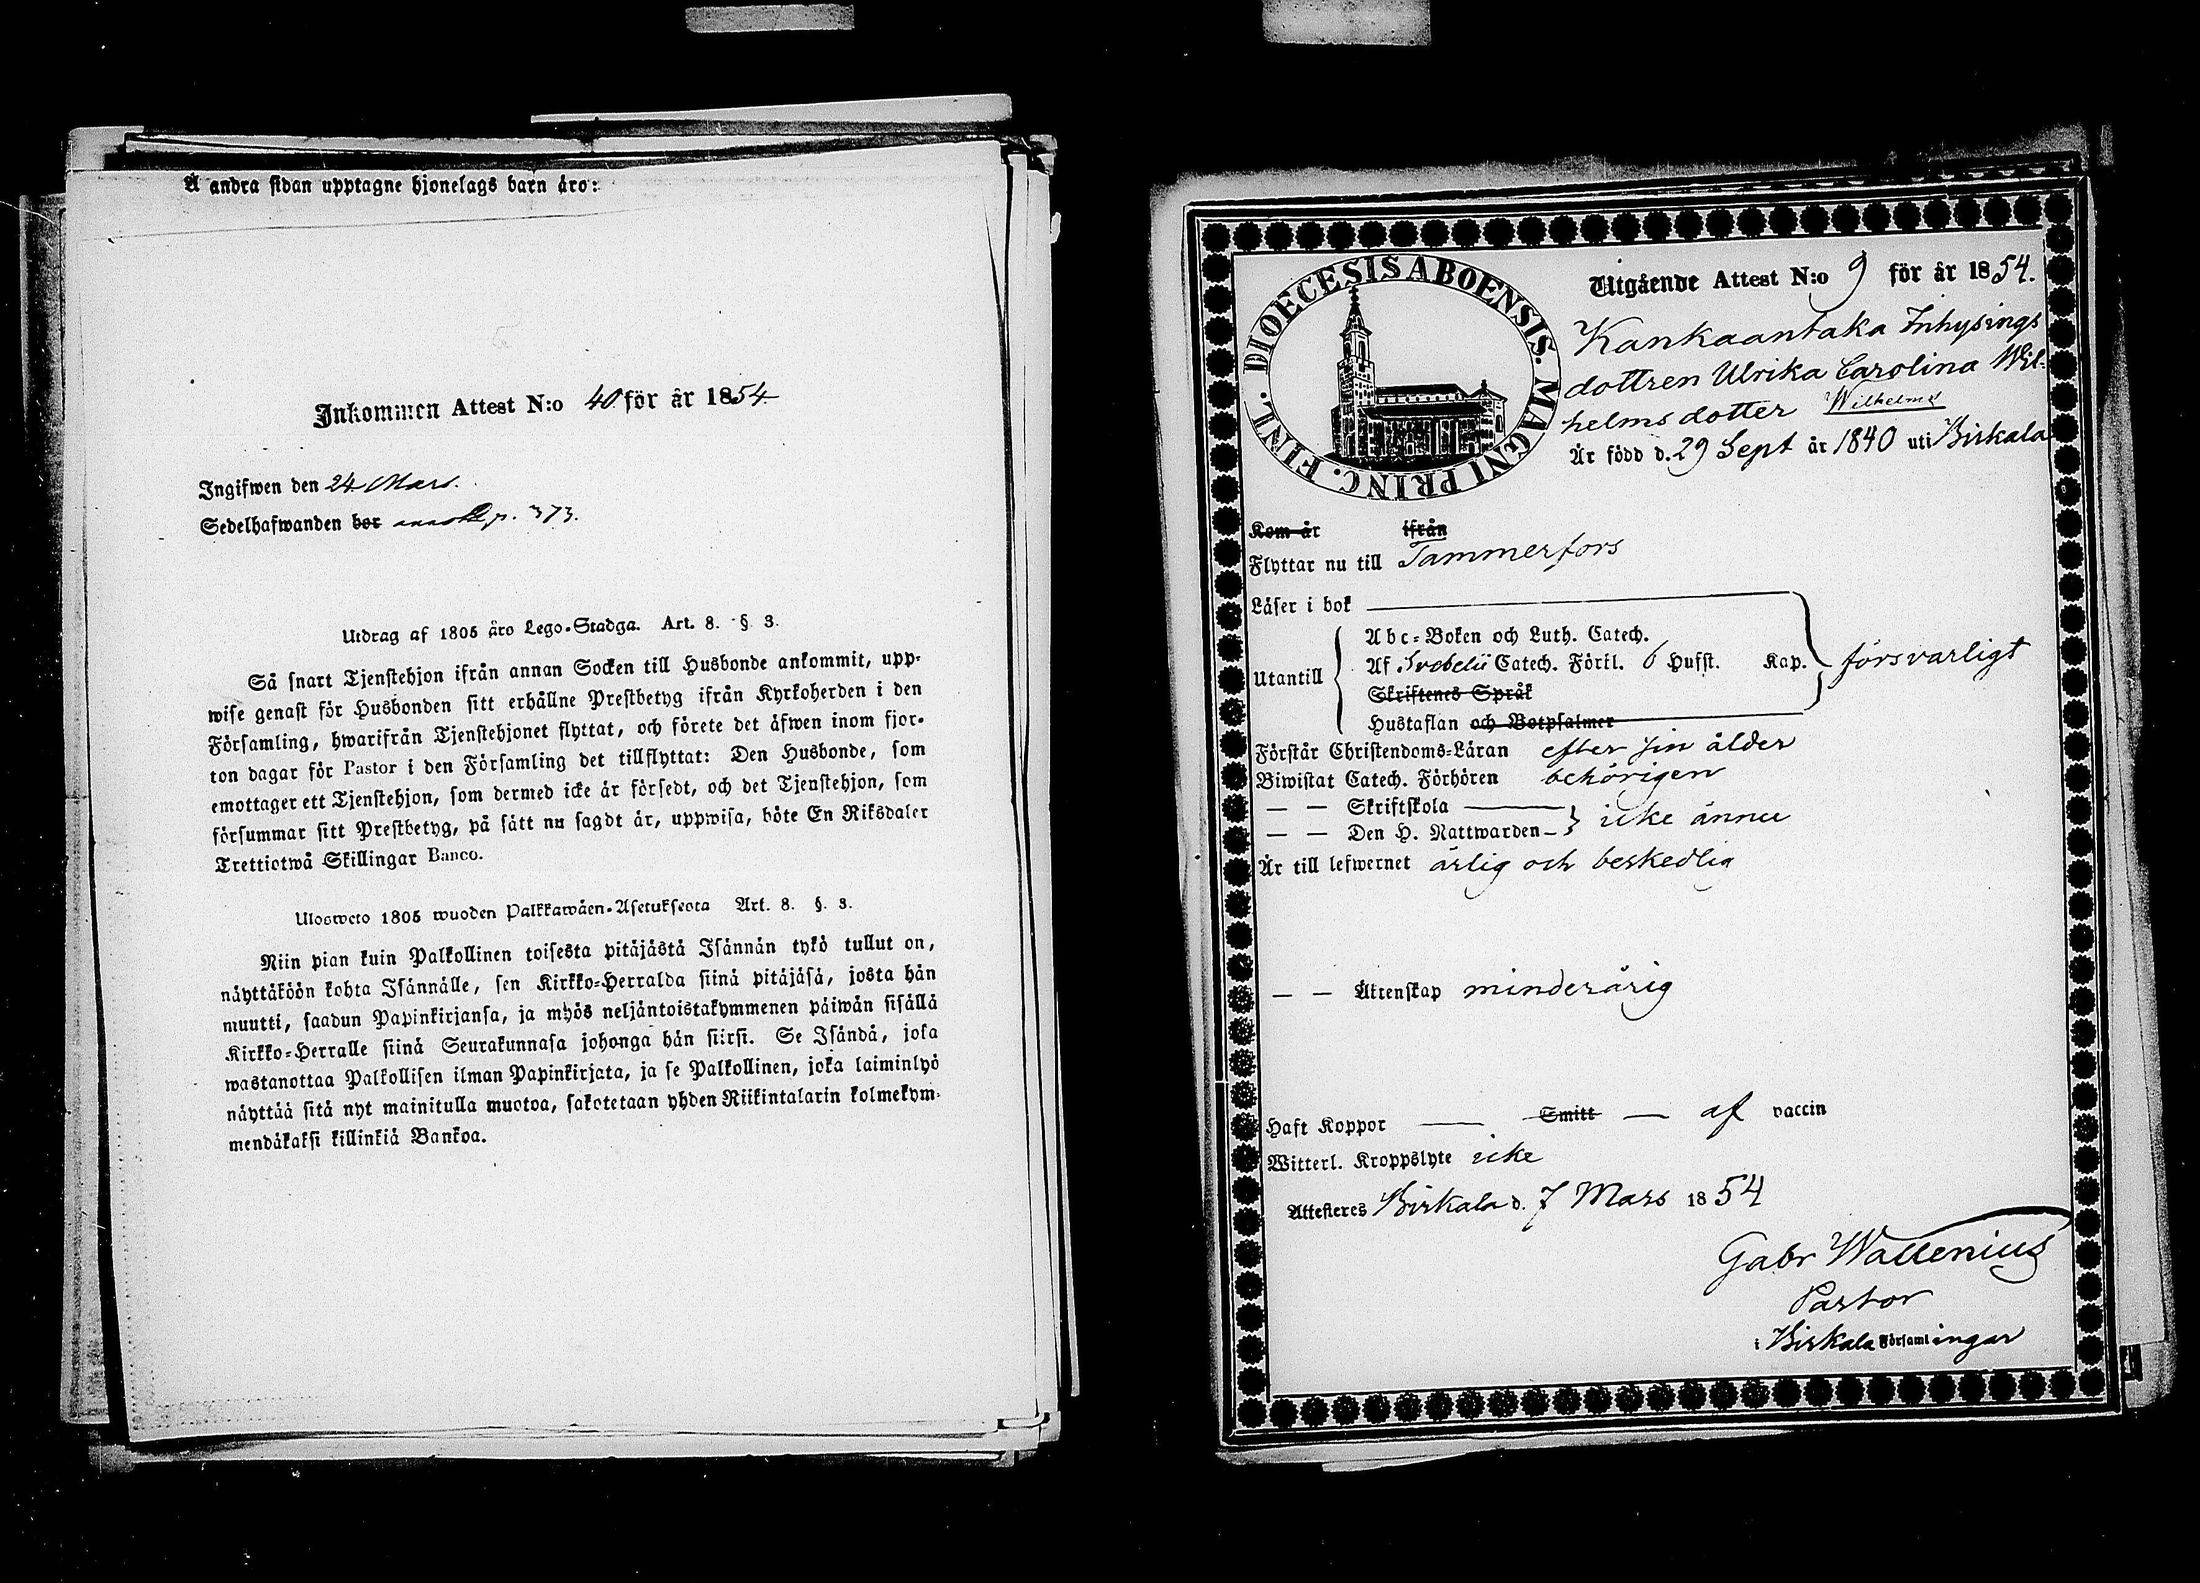 Å andra sidan upptagne hjonelags barn äro:
Inkommen Attest N:o 40 för år 1854.
Ingifwen den 24 Mars.
Sedelhafwanden bor p. 373.
Utdrag af 1805 års Lego-Stadga. Art. 8. § 3.
Så snart Tjenstehjon ifrån annan Socken till Husbonde ankommit, upp-
wise genast för Husbonden sitt erhållne Prestbetyg ifrån Kyrkoherden i den
Församling, hwarifrån Tjenstehjonet flyttat, och förete det äfwen inom fjor-
ton dagar för Pastor i den Församling det tillflyttat: Den Husbonde, som
emottager ett Tjenstehjon, som dermed icke är försedt, och det Tjenstehjon, som
försummar sitt Prestbetyg, på sätt nu sagdt är, uppwisa, böte En Riksdaler
Trettiotwå Skillingar Banco.
Ulosweto 1805 wuoden Palkkawäen-Asetuksesta Art. 8. §. 3.
Niin pian kuin Palkollinen toisesta pitäjästä Isännän tykö tullut on,
näyttäköön kohta Isännälle, sen Kirkko-Herralda siinä pitäjäsä, josta hän
muutti, saadun Papinkirjansa, ja myös neljäntoistakymmenen päiwän sisällä
Kirkko-Herralle siinä Seurakunnasa johonga hän siirsi. Se Isändä, joka
wastanottaa Palkollisen ilman Papinkirjata, ja se Palkollinen, joka laiminlyö
näyttää sitä nyt mainitulla muotoa, sakotetaan yhden Riikintalarin kolmekym-
mendäkaksi killinkiä Bankoa.
DIOECESIS ABOENSIS. MAGNI PRINC. FINL.
Utgående Attest N:o 9 för år 1854.
Kankaantaka Inhysings
dottren Ulrika Carolina Wil-
helmsdotter Wilhelms
Är född d. 29 Sept år 1840 uti Birkala
Kom år ifrån
Flyttar nu till Tammerfors
Läser i bok
Abc-Boken och Luth. Catech.
Utantill Af Svebelii Catech. Förkl. 6 Hufst. Kap. försvarligt
Skriftenes Språk
Hustaflan och Botpsalmer
Förstår Christendoms-Läran efter sin ålder
Biwistat Catech. Förhören behörigen
— — Skriftskola
— — Den H. Nattwarden icke ännu
Är till lefwernet ärlig och beskedlig
— — Äktenskap minderårig
Haft Koppor — Smitt — af vaccin
Witterl. Kroppslyte icke
Attesteres Birkala d. 7 Mars 1854
Gabr Wallenius
Pastor
i Birkala Församlingar